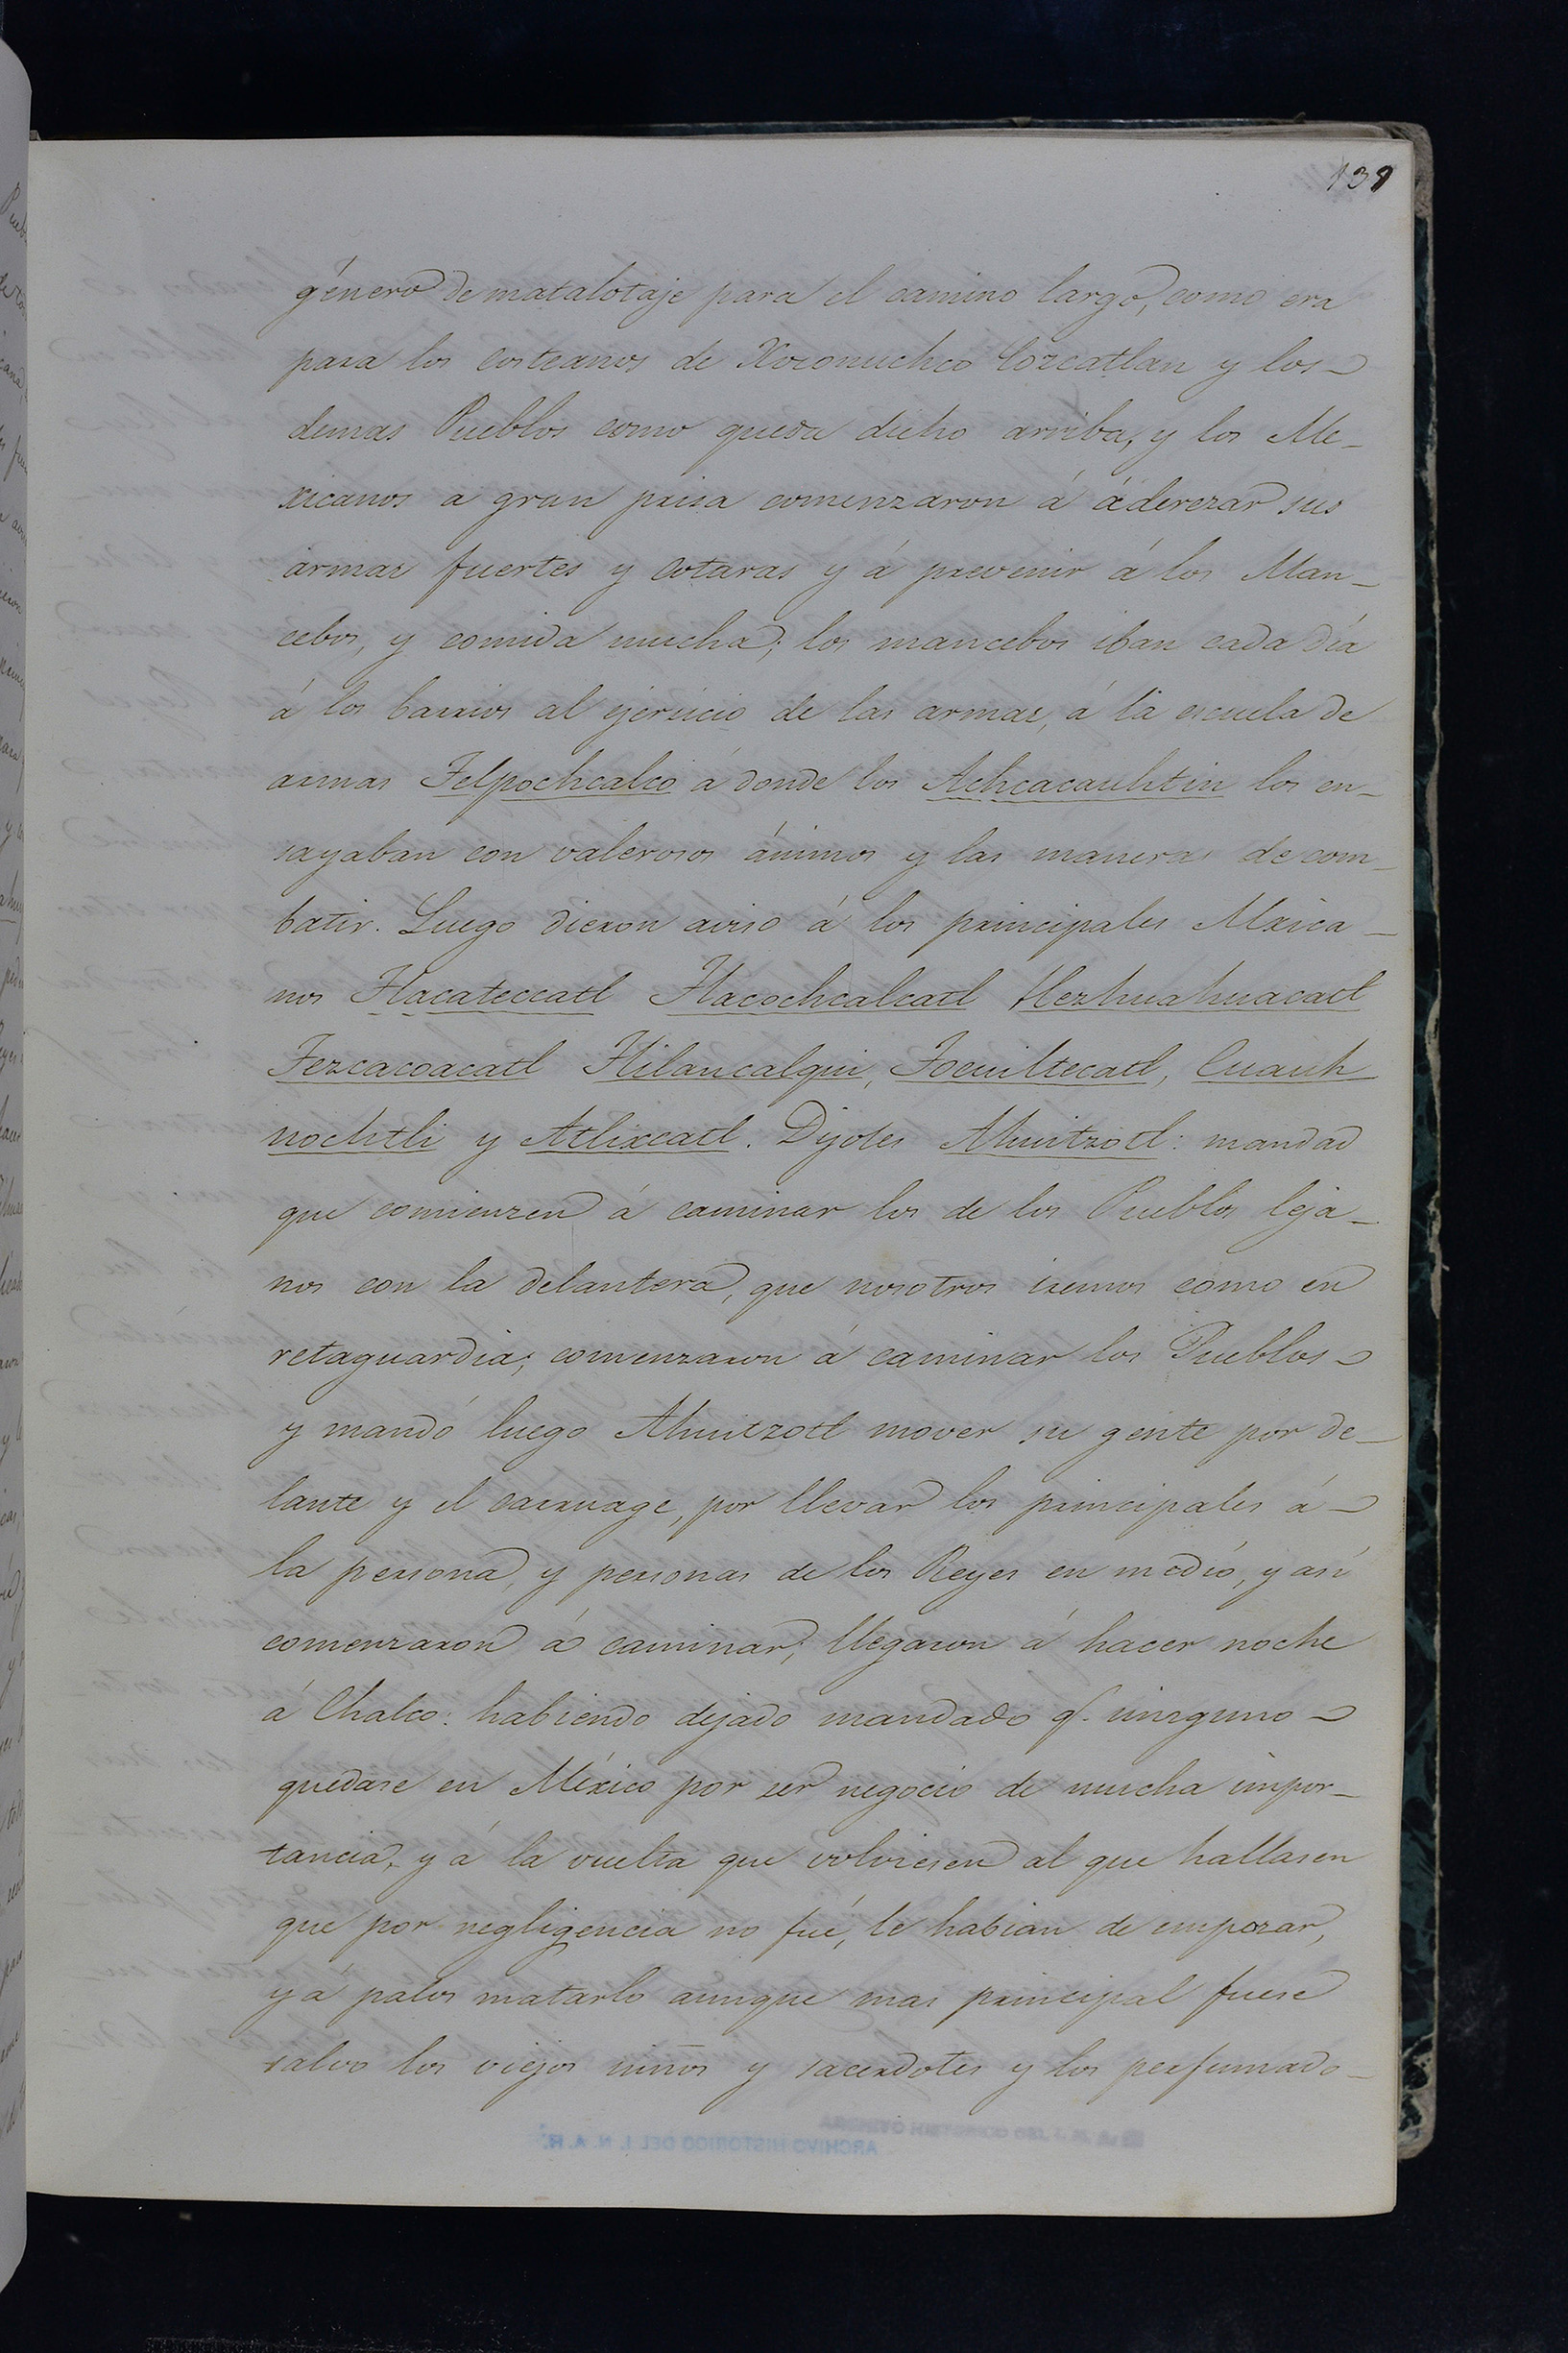 139
género de matalotaje para el camino largo, como era
para los costeanos de Xoconuchco Cozcatlan y los
demas Pueblos como queda dicho arriba, y los Me-
xicanos a gran prisa comenzaron á áderezar sus
armas fuertes y cotaras y á prevenir á los Man-
cebos, y comida mucha; los mancebos iban cada día
á los barrios al ejersicio de las armas, á la escuela de
armas Telpochcalco á donde los Achcacauhtin los en-
sayaban con valerosos ánimos y las maneras de com-
batir. Luego dieron aviso á los principales Mexica-
nos Tlacateccatl Tlacochcalcatl Hezhuahuacatl
Tezcacoacatl Tlilancalqui, Tocuiltecatl, Cuauh
nochtli y Atlixcatl. Dijoles Ahuitzotl: mandad
que comienzen á caminar los de los Pueblos leja-
nos con la delantera, que nosotros iremos como en
retaguardia; comenzaron á caminar los Pueblos
y mandó luego Ahuitzotl mover su gente por de-
lante y el carruage, por llevar los principales á
la persona, y personas de los Reyes en medio, y así
comenzaron á caminar; llegaron á hacer noche
á Chalco: habiendo dejado mandado q. ninguno
quedase en México por ser negocio de mucha impor-
tancia, y á la vuelta que volviesen al que hallasen
que por negligencia no fué, le habian de empozar,
y á palos matarlo aunque mas principal fuese
salvo los viejos niños y sacerdotes y los perfumado-